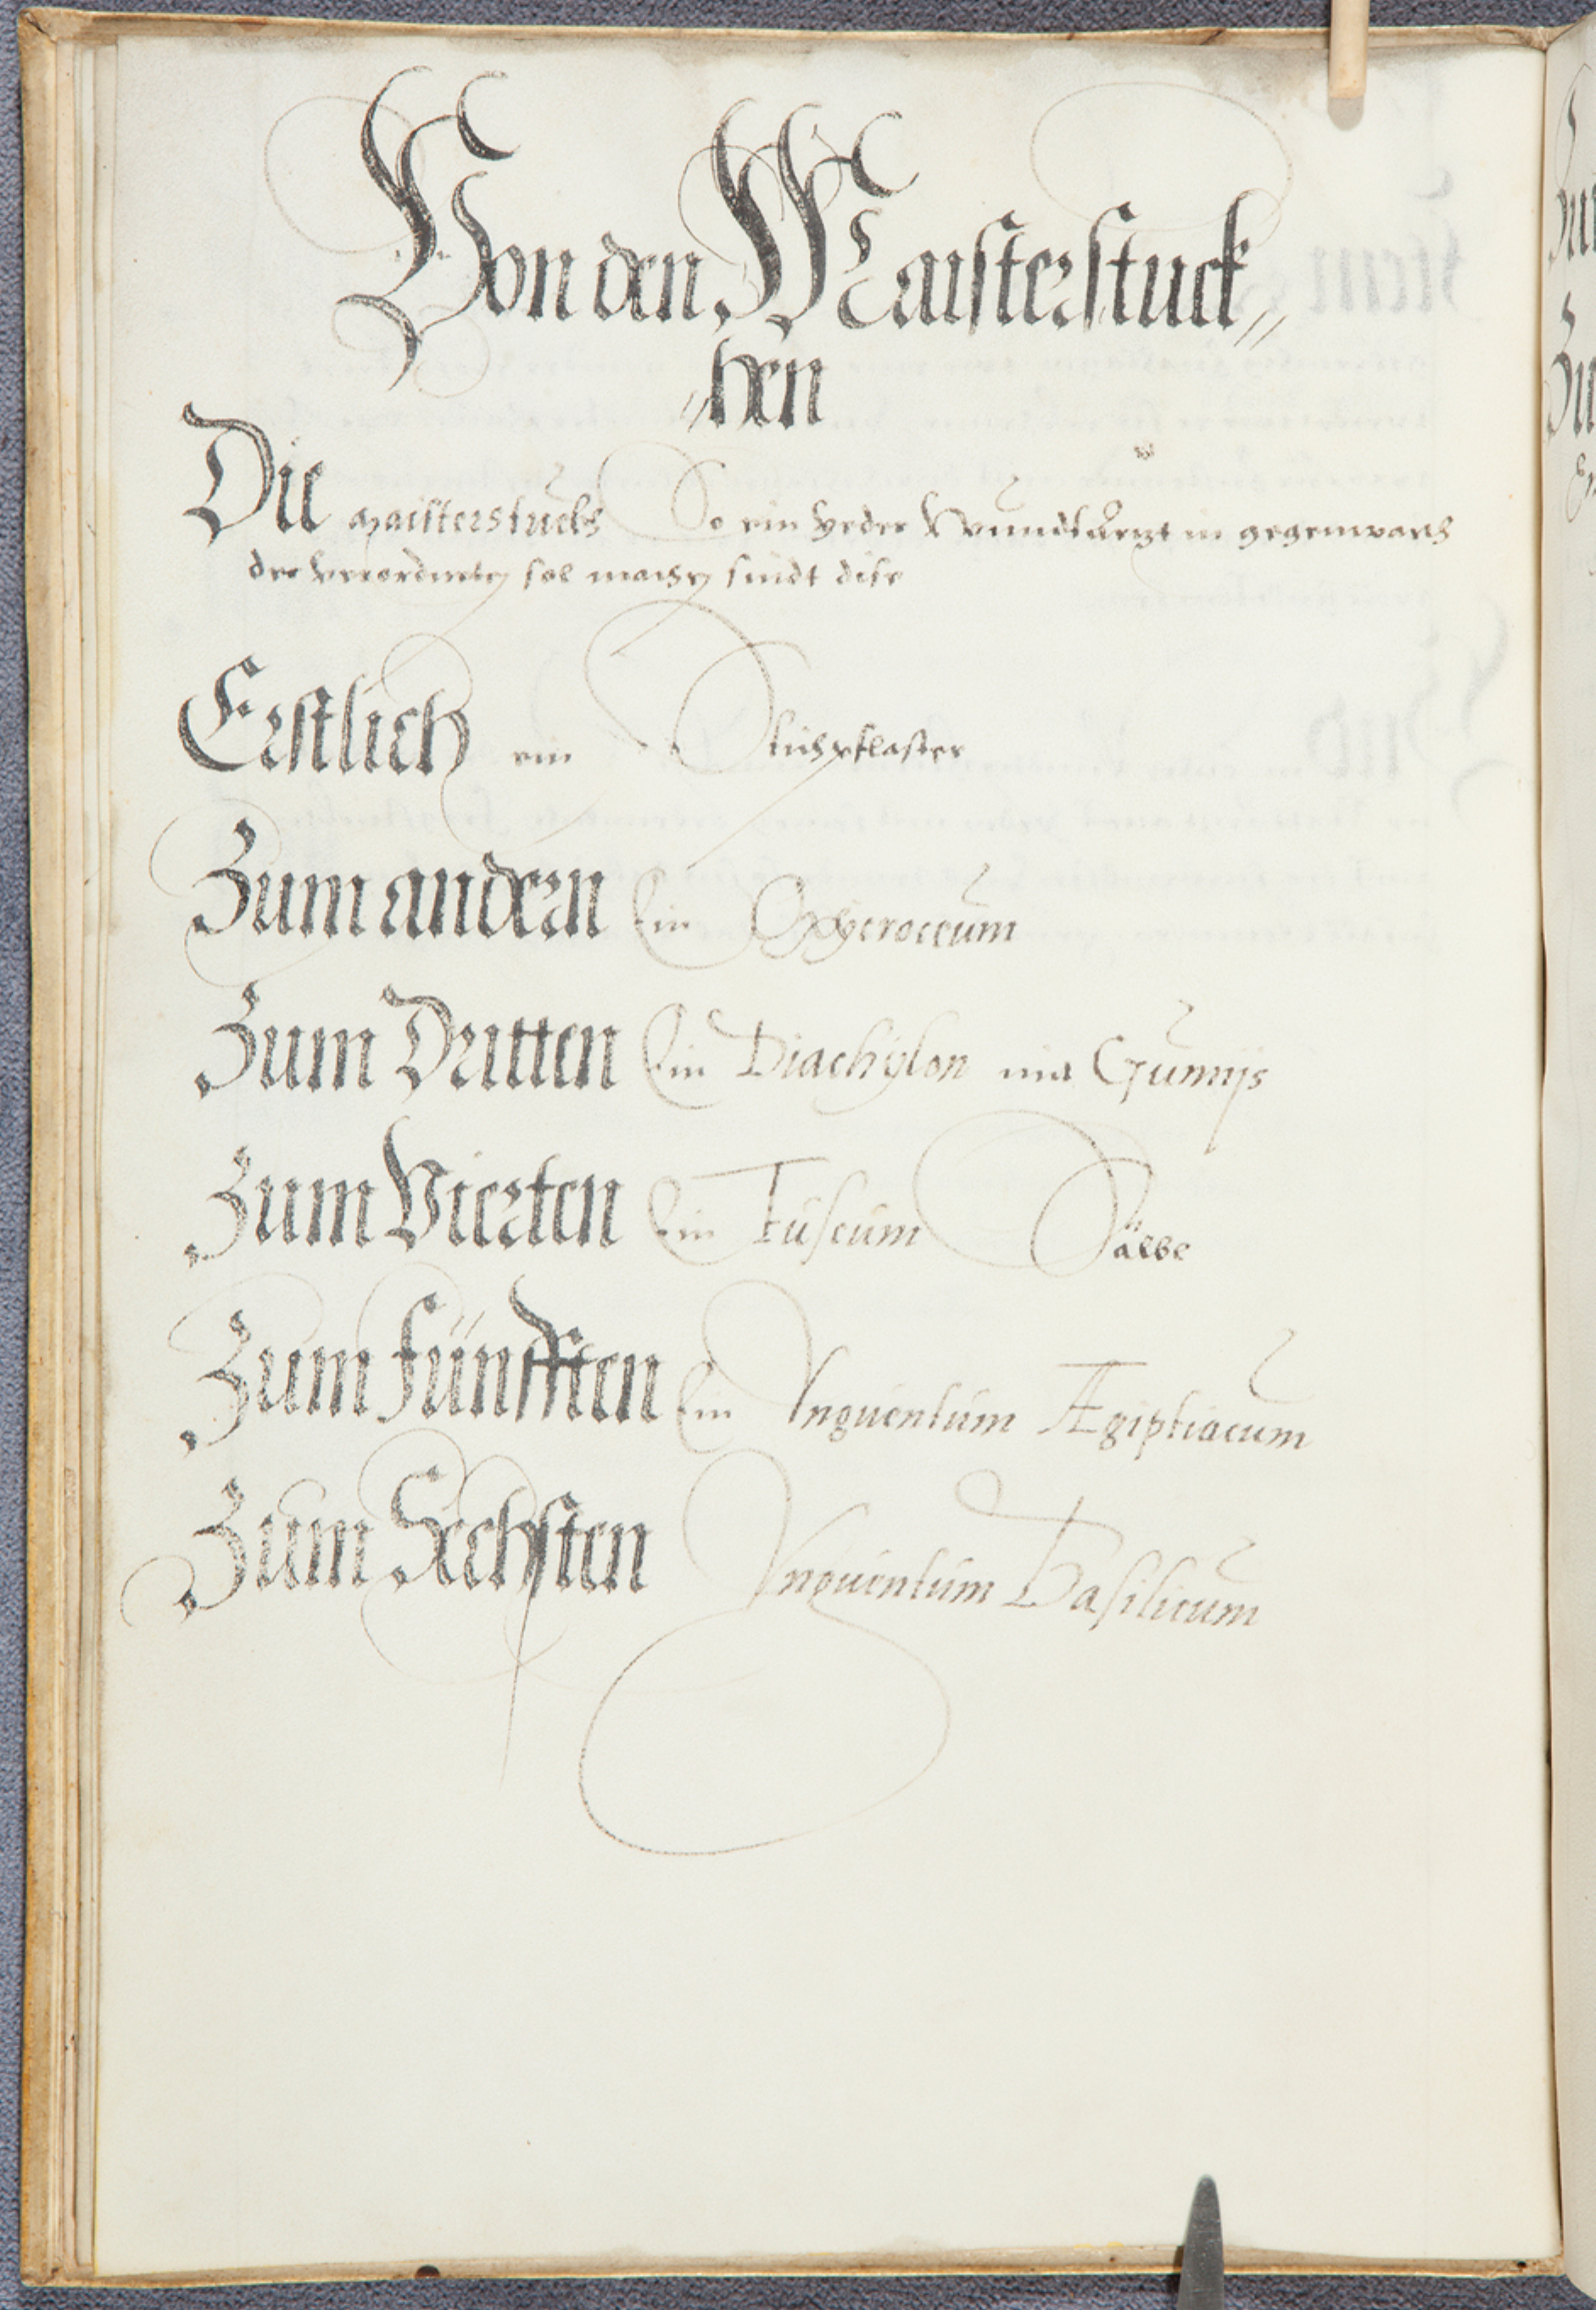 Von den Maisterstuck„
„hen
Die maisterstuckh So ein yeder Wundtarzt in gegenwart
der verordneten sol machen sindt dise
Erstlich ein Stichpflaster
Zum andern Ein Oxycroceum
Zum Dritten Ein Diachylon mit Gumijs
Zum Vierten Ein Fuscum Salbe
Zum fünfften Ein Vnguentum Ægiptiacum
Zum Sechsten Vnguentum Basilicum